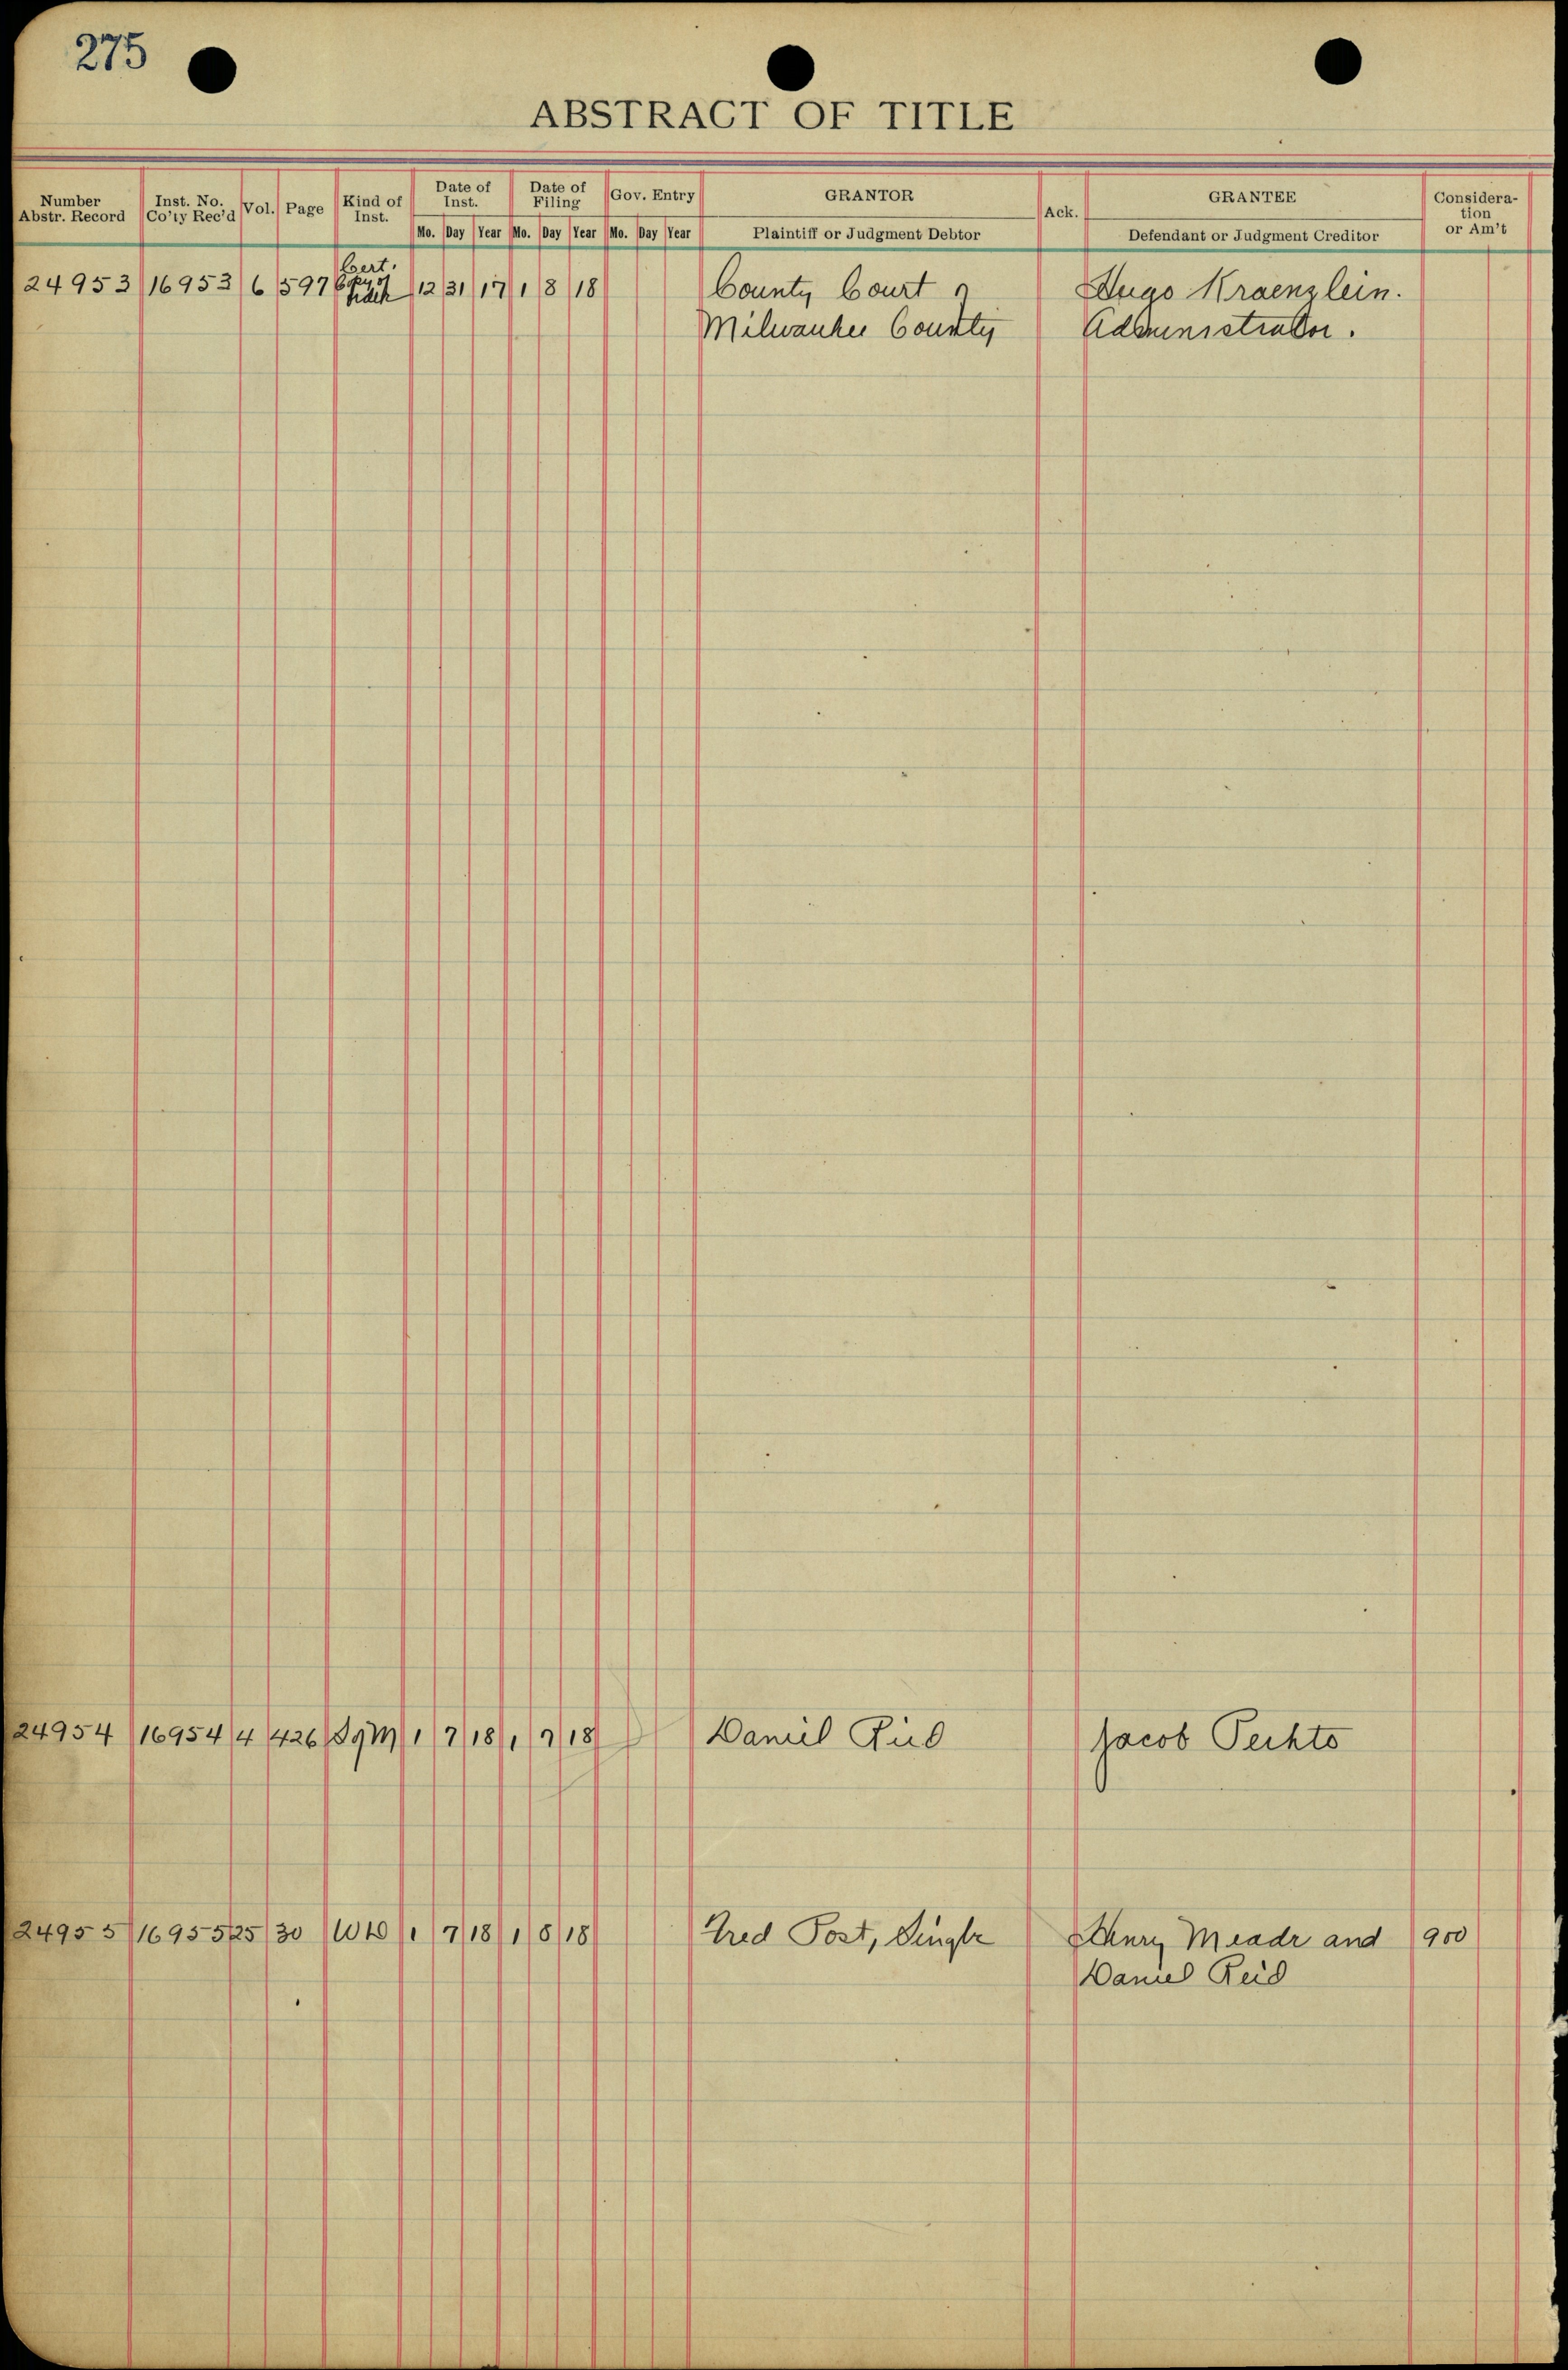 275
ABSTRACT OF TITLE
Number Abstr. Record Inst. No. Co'ty Rec'd Vol. Page Kind of Inst. Date of Inst. Date of Filing Gov. Entry GRANTOR Ack. GRANTEE Considera-tion or Am't
Mo. Day Year Mo. Day Year Mo. Day Year Plaintiff or Judgment Debtor Defendant or Judgment Creditor
Cert.
24953 16953 6 597 Copy of 12 31 17 1 8 18 County Court Hugo Kraenzlein.
Milwaukee County Administrator.
24954 16954 4 426 SgM 1 7 18 1 7 18 Daniel Reid Jacob Pechto
24955 16955 25 30 WD 1 7 18 1 8 18 Fred Post, Single Henry Meade and 900
Daniel Reid